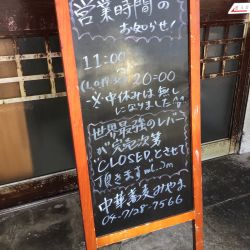 営業時間の
お知らせ!
11:00
(L.O.19:45) 20:00
※中休みは無し
になりました!!
世界最強のレバー
が完売次第
CLOSEDとさせて
頂きますm(_ _)m
中華蕎麦みやま
04-7128-7566